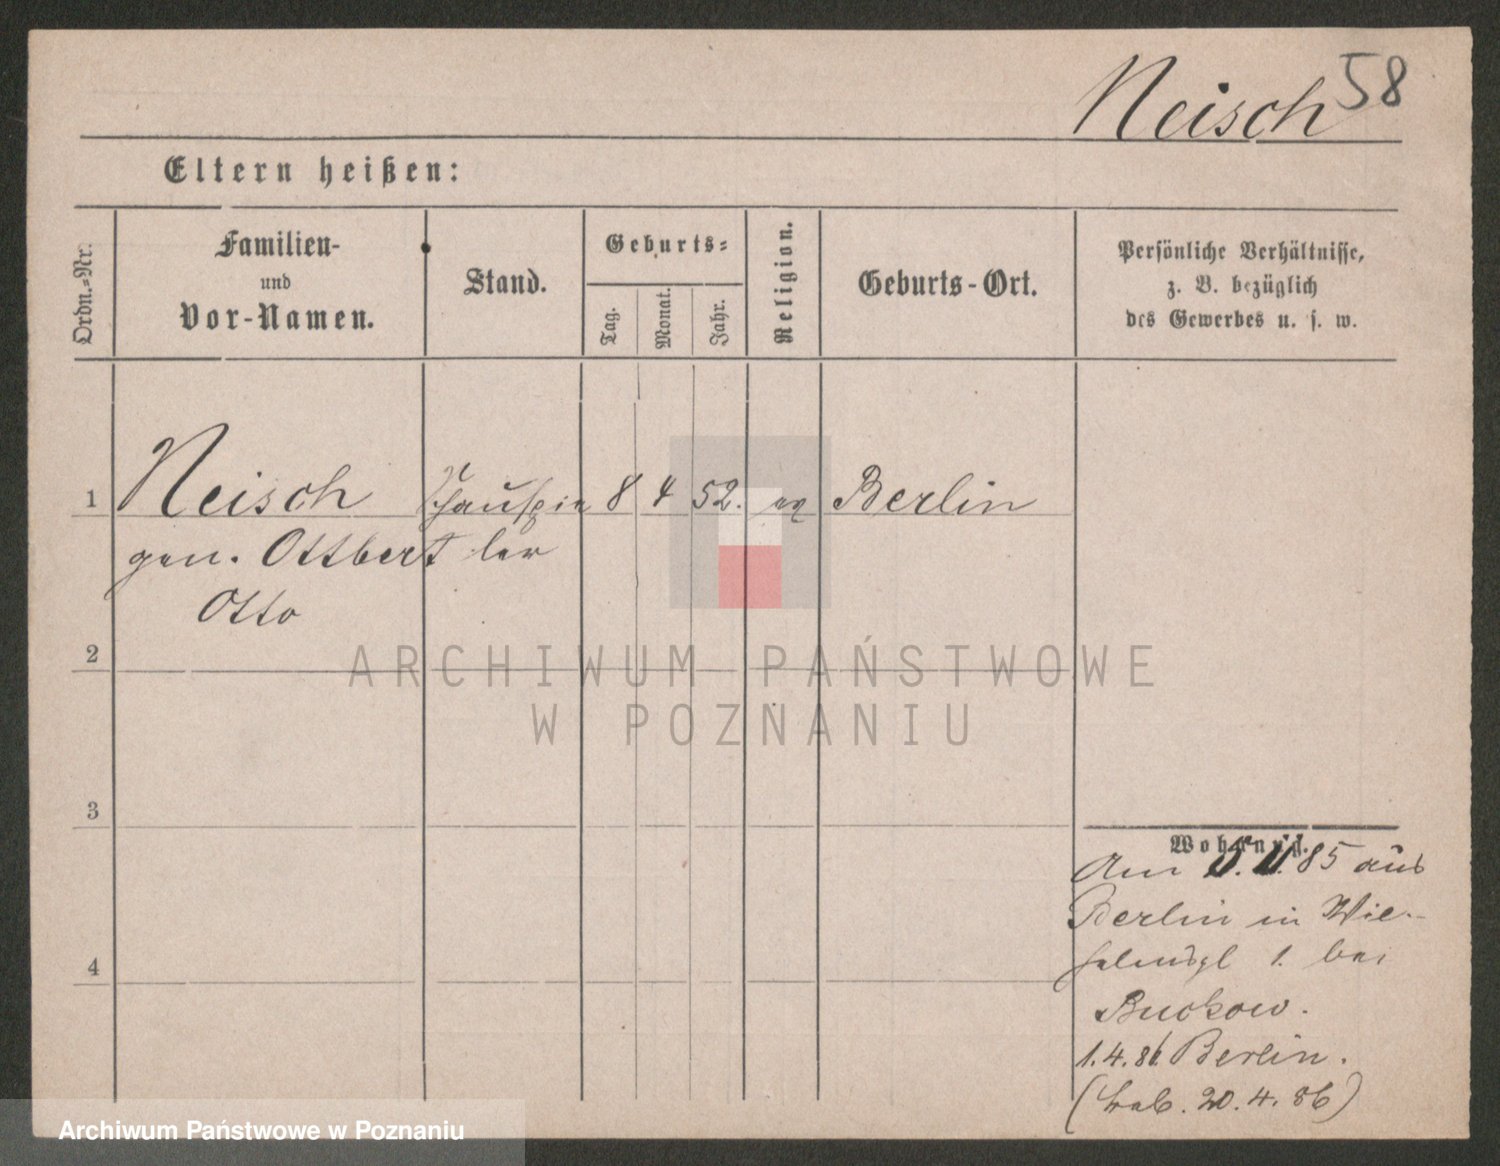 58
Neisch
Eltern heißen:
Ordn.-Nr.
Familien-
und
Vor-Namen.
Stand.
Geburts-
Tag.
Monat.
Jahr.
Religion.
Geburts-Ort.
Persönliche Verhältnisse,
z. B. bezüglich
des Gewerbes u. s. w.
1 Neisch Schauspie 8 4 52. ev Berlin
gen. Ottbert ler
Otto
2
3
4
ARCHIWUM PAŃSTWOWE
W POZNANIU
Wohnung.
Am 85 aus
Berlin in Wil-
1. bei
Buckow.
1.4.86 Berlin.
20.4.86)
Archiwum Państwowe w Poznaniu